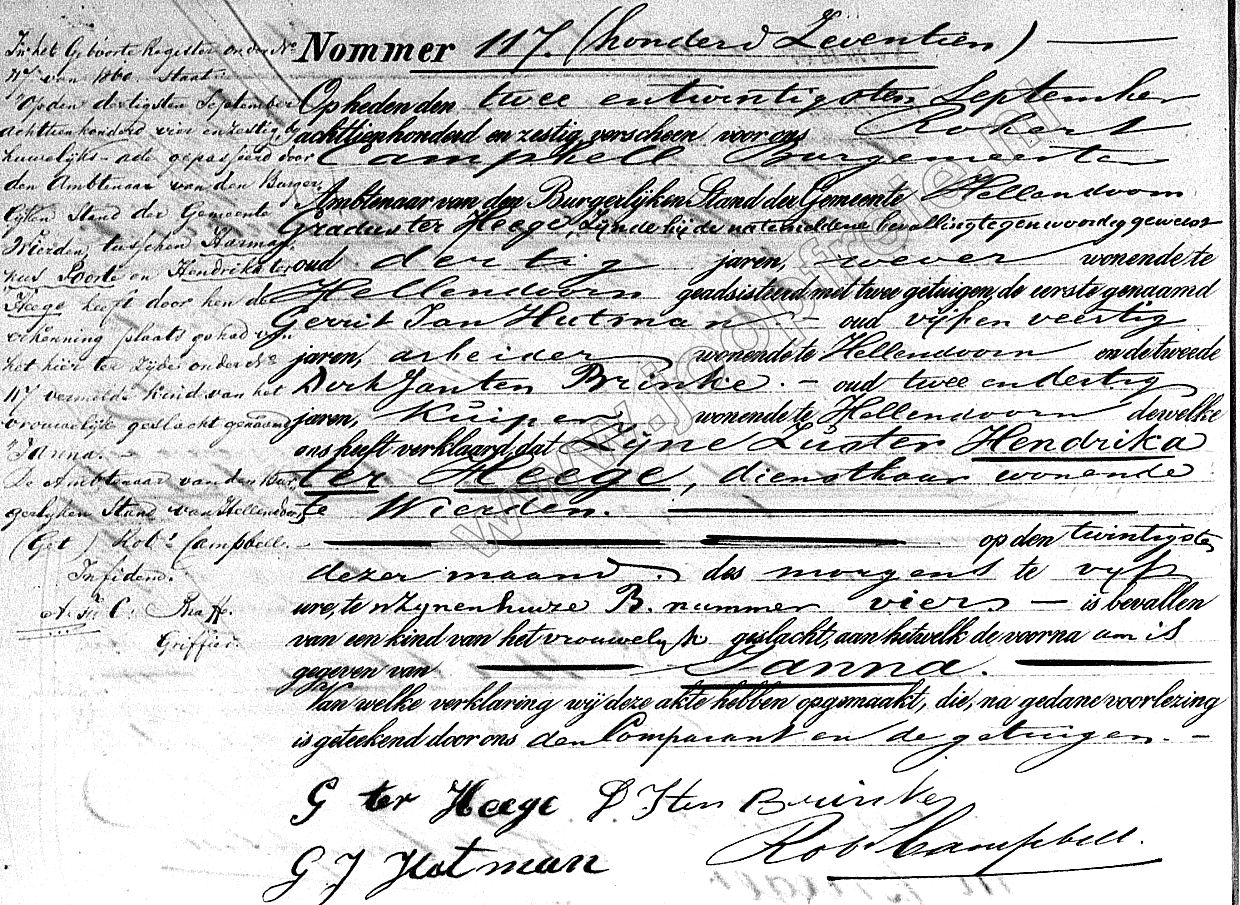 Nommer 117. (honderd Zeventien)
Op heden den twee entwintigsten September
achttienhonderd en zestig, verscheen voor ons Robert
Campbell Burgemeester
Ambtenaar van den Burgerlijken Stand der Gemeente Hellendoorn
Gradus ter Heege, Zijnde bij de natemeldene bevalling tegenwoordig geweest
oud dertig jaren, wever wonende te
Hellendoorn geadsisteerd met twee getuigen, de eerste genaamd
Gerrit Jan Hutman – oud vijf en veertig
jaren, arbeider wonende te Hellendoorn en de tweede
Derk Jan ten Brinke. – oud twee en dertig
jaren, Kuiper, wonende te Hellendoorn dewelke
ons heeft verklaard, dat Zijne Zuster Hendrika
ter Heege, dienstbaar wonende
te Wierden.
op den twintigsten
dezer maand. des morgens te vijf
ure, te zijnen huize B. nummer vier – is bevallen
van een kind van het vrouwelijk geslacht, aan hetwelk de voornaam is
gegeven van Janna.
Van welke verklaring wij deze akte hebben opgemaakt, die, na gedane voorlezing
is geteekend door ons den Comparant en de getuigen. –
G ter Heege D. J ten Brinke
G J Hotman Rob Campbell.
In het Geboorte Register onder No.
117 van 1860 staat:
Op den dertigsten September
achttienhonderd vier en zestig, de
huwelijks-acte gepasseerd voor
den Ambtenaar van den Burger
lijken Stand der Gemeente
Wierden, tusschen Harman
nus Poorte en Hendrika ter
Heege heeft door hen de
erkenning plaats gehad van
het hier ter zijde onder No.
117 vermelde kind van het
vrouwelijk geslacht genaamd
Janna. –
De Ambtenaar van den Bur
gerlijken Stand van Hellendoorn
(Get) Robt. Campbell. –
In fidem.
Griffier.
www.joopfrede.nl